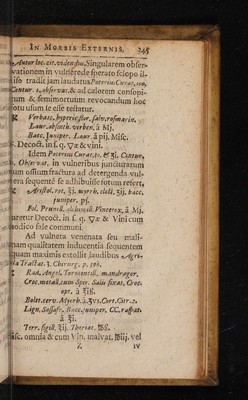 IN MORBIS EXTERNIS. 245
Autor loc. cit. videndus. Singularem obser-
vationem in vulnere desperato sclopo il-
tradit jam laudatus Poterius Curat. 100.
Centur. 1. observat. & ad calorem consopi-
um & femimortuum revocandum hoc
otu usum se esse testatur.
Verbasc. hyperic. flor. salv. rosmarin.
Laur. absinth. verben. à Mj.
Bacc. Juniper. Laur. à pij. Misc.
Decoct. in s. q. ▽æ & vini.
Idem Poterius Curat. &
Observat. in vulneribus juncturarum
um ossium fractura ad detergenda vul-
era sequentè se adhibuisse fotum refert.
Aristol. rot. ℥j. myrrh. elect. ʒij. bacc.
juniper. pj.
Fol. Prunell. alchimill. Vincetox. à Mj.
aretur Decoct. in s. q. ▽æ & Vini cum
modico sale communi.
Ad vulnera venenata seu mali-
nam qualitatem inducentia sequentem
quam maximis extollit laudibus Agri-
Tractat. 3. Chirurg. p. 306.
Rad. Angel. Tormentill. mandragor.
Croc. metall. cum Sper. Salis fixat. Croc.
opt. à ʒiß.
Bolet. cerv. Myrrh. à ʒvs. Cort. Citr. 2.
Lign. Sassafr. Bacc. juniper. CC. raspat.
à ℥j.
Terr. sigill. ℥ij. Theriac.
isc. omnia & cum Vin. malvat. vel
Z IV